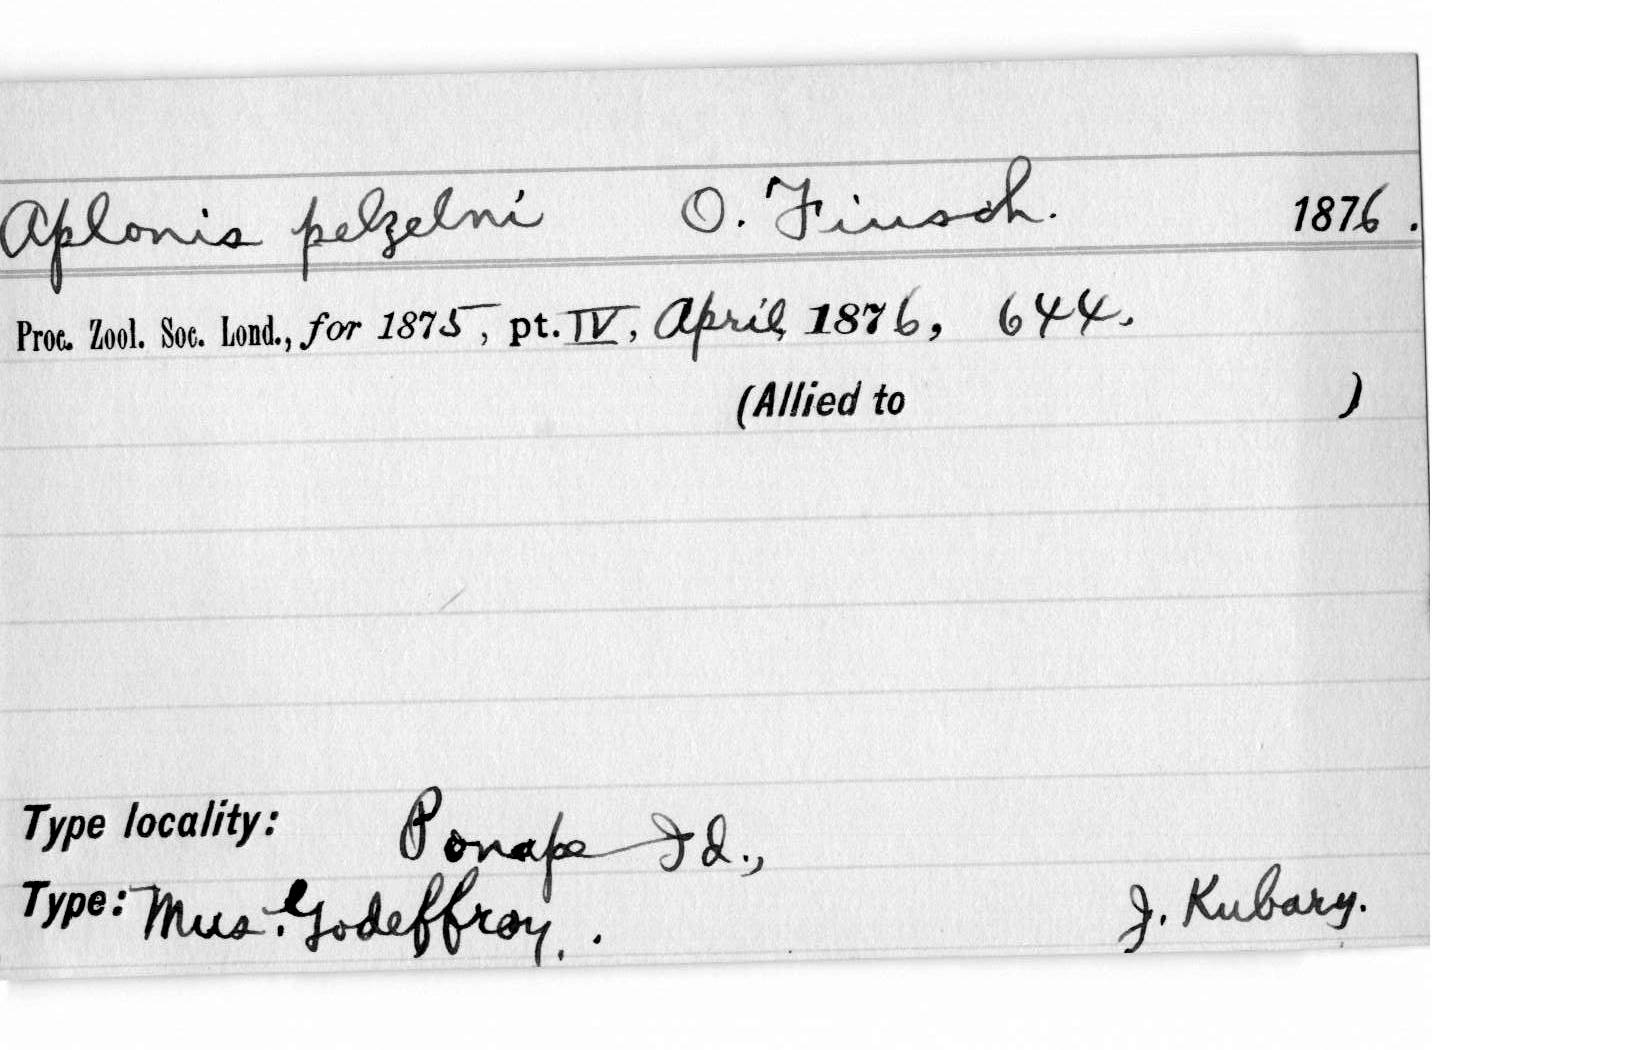 Aplonis pelzelni O. Finsch. 1876.
Proc. Zool. Soc. Lond., for 1875, pt. IV, April, 1876, 644.
(Allied to )
Type locality: Ponape Id.,
Type: Mus. Godeffroy. J. Kubary.